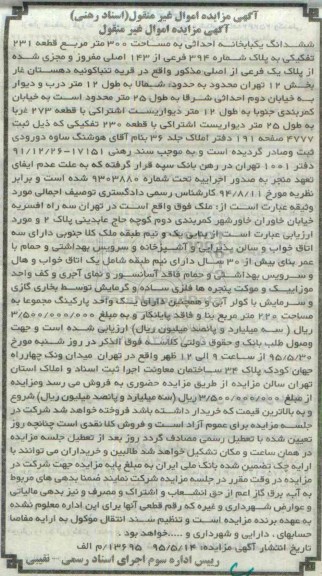 آگهی مزایده اموال غیر منقول(اسناد رهنی)
آگهی مزایده اموال غیر منقول
ششدانگ یکبابخانه احداثی به مساحت ۳۰۰ متر مربع قطعه ۲۳۱
تفکیکی به پلاک شماره ۳۹۴ فرعی از ۱۴۳ اصلی مفروز و مجزی شده
از پلاک یک فرعی از اصلی مذکور واقع در قریه تنباکوئیه دهستان غار
بخش ۱۲ تهران محدود به حدود: شمالا به طول ۱۲ متر درب و دیوار
به خیابان دوم احداثی شرقا به طول ۲۵ متر محدود است به خیابان
کمربندی جنوبا به طول ۱۲ متر دیواریست اشتراکی با قطعه ۲۷۳ غربا
به طول ۲۵ متر دیواریست اشتراکی با قطعه ۲۳۰ تفکیکی که ذیل ثبت
۴۷۷۷ صفحه ۱۹۱ دفتر املاک جلد ۳۶ بنام آقای هوشنگ ساوه دورودی
ثبت وصادر گردیده است و به موجب سند رهنی ۱۷۱۵۱-۹۱/۱۲/۲۶
دفتر ۱۰۰۱ تهران در رهن بانک سپه قرار گرفته که به علت عدم ایفای
تعهد منجر به صدور اجراییه تحت شماره ۹۳۰۳۸۸۰ شده است و برابر
نظریه مورخ ۹۴/۸/۱۱ کارشناس رسمی دادگستری توصیف اجمالی مورد
وثیقه عبارت است از: ملک فوق واقع است در تهران سه راه افسریه
خیابان خاوران خاورشهر کمربندی دوم کوچه حاج عابدینی پلاک ۲ و مورد
ارزیابی عبارت است از بنایی یک و نیم طبقه ملک کلا جنوبی دارای سه
اتاق خواب و سالن پذیرایی و آشپزخانه و سرویس بهداشتی و حمام با
عمر بنای بیش از ۳۰ سال دارای نیم طبقه شامل یک اتاق خواب و هال
و سرویس بهداشتی و حمام فاقد آسانسور و نمای آجری و کف واحد
موزاییک و موکت پنجره ها فلزی ساده و گرمایش توسط بخاری گازی
و سرمایش با کولر آبی و همچنین دارای یک واحد پارکینگ مجموعا به
مساحت ۲۲۰ متر مربع بنا و فاقد پایانکار و به مبلغ ۳/۵۰۰/۰۰۰/۰۰۰
ریال ( سه میلیارد و پانصد میلیون ریال) ارزیابی شده است و جهت
وصول طلب بانک و حقوق دولتی کلاسه فوق الذکر در روز شنبه مورخ
۹۵/۵/۳۰ از ساعت ۹ الی ۱۲ ظهر واقع در تهران میدان ونک چهارراه
جهان کودک پلاک ۳۴ ساختمان معاونت اجرا ثبت اسناد و املاک استان
تهران سالن مزایده از طریق مزایده حضوری به فروش می رسد ومزایده
از مبلغ ۳/۵۰۰/۰۰۰/۰۰۰ ریال (سه میلیارد و پانصد میلیون ریال) شروع
و به بالاترین قیمت که خریدار داشته باشد فروخته خواهد شد شرکت در
جلسه مزایده برای عموم آزاد است و فروش کلا نقدی است چنانچه روز
تعیین شده با تعطیل رسمی مصادف گردد روز بعد از تعطیل جلسه مزایده
در همان ساعت و مکان تشکیل خواهد شد طالبین و خریداران می توانند با
ارایه چک تضمین شده بانک ملی ایران به مبلغ پایه مزایده جهت شرکت در
مزایده در وقت مقرر در جلسه مزایده شرکت نمایند ضمنا بدهی های مربوط
به آب، برق گاز اعم از حق انشعاب و اشتراک و مصرف و نیز بدهی مالیاتی
و عوارض شهرداری و غیره که رقم قطعی آنها برای این اداره معلوم نشده
به عهده برنده مزایده است و تنظیم سند انتقال موکول به ارایه مفاصا
حسابهای ، دارایی و شهرداری و .....خواهد بود .
تاریخ انتشار آگهی مزایده: ۹۵/۵/۱۴ ۱۳۶۹۵/م الف
رییس اداره سوم اجرای اسناد رسمی - نقیبی